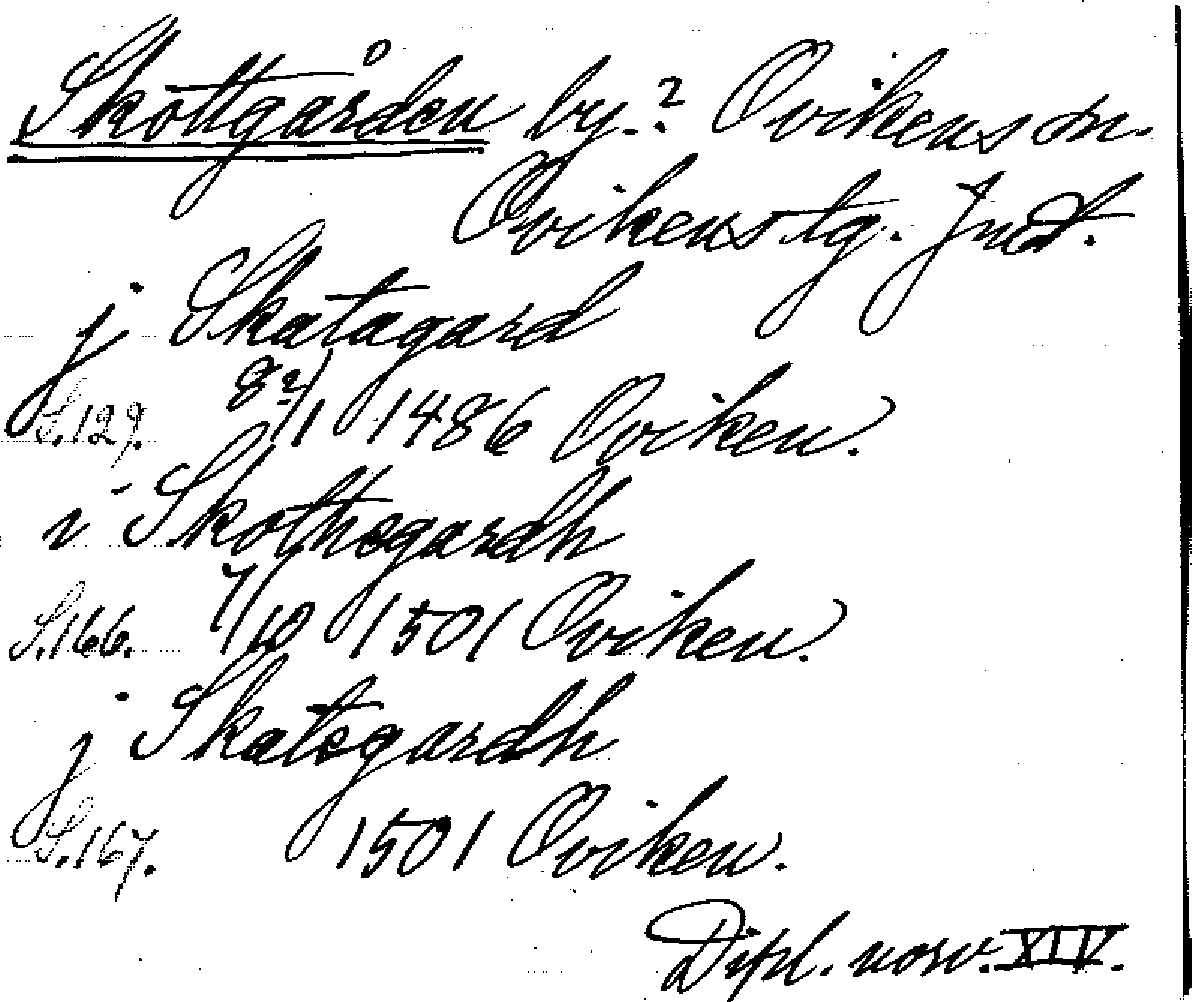 Skottgården by.? Ovikens sn.
Ovikens tg. Jmtl.
j Skatagard
S.129. 1486 Oviken.
i Skottsgardh
S.166. 7/10 1501 Oviken.
j Skatsgardh
S.167. 1501 Oviken.
Dipl. norv. XIV.